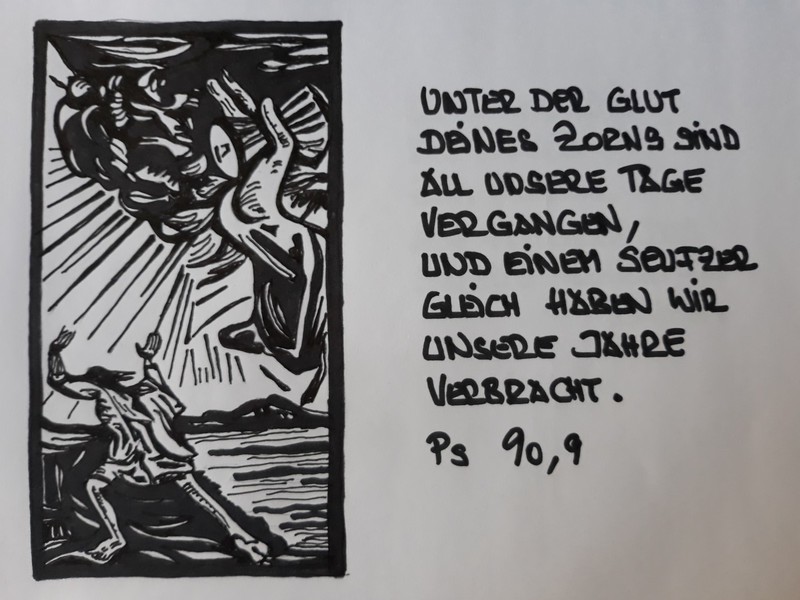 UNTER DER GLUT
DEINES ZORNS SIND
ALL UNSERE TAGE
VERGANGEN,
UND EINEM SEUFZER
GLEICH HABEN WIR
UNSERE JAHRE
VERBRACHT.
Ps 90,9